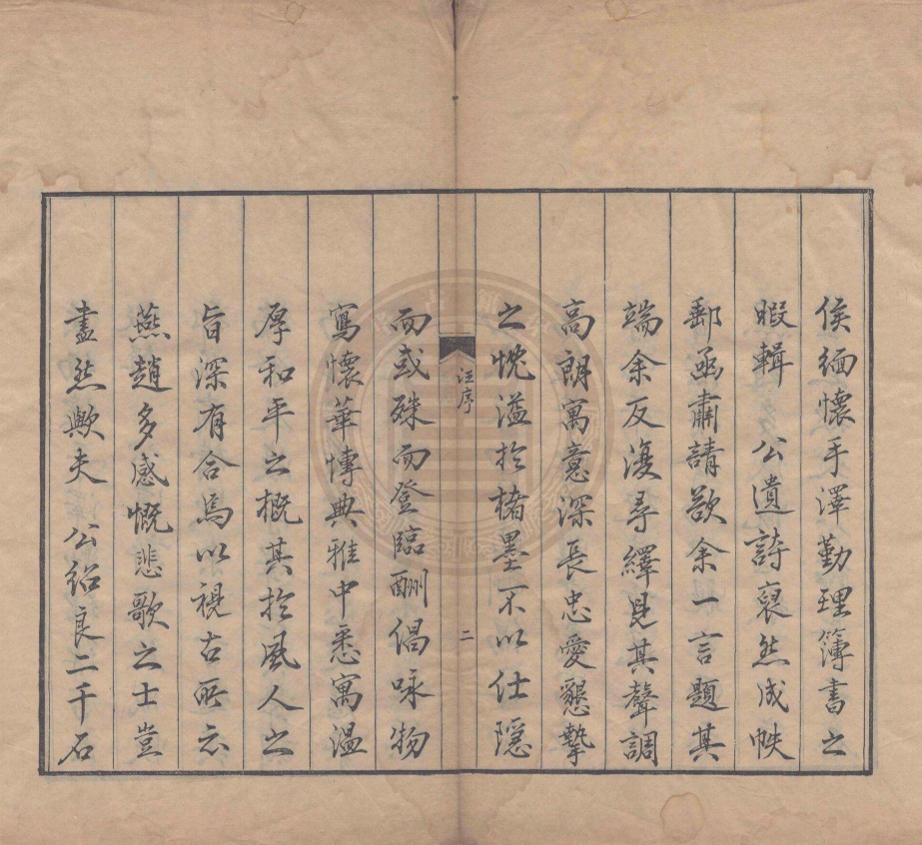 侯緬懷手澤勤理簿書之
暇輯　公遺詩裒然成帙
郵函肅請欲余一言題其
端余反復尋繹見其聲調
高朗寓意深長忠愛懇摯
之忱溢於楮墨不以仕隱
汪序
二
而或殊而登臨酬倡咏物
寫懷華博典雅中悉寓溫
厚和平之概其於風人之
旨深有合焉以視古所云
燕趙多感慨悲歌之士豈
盡然歟夫　公紹良二千石